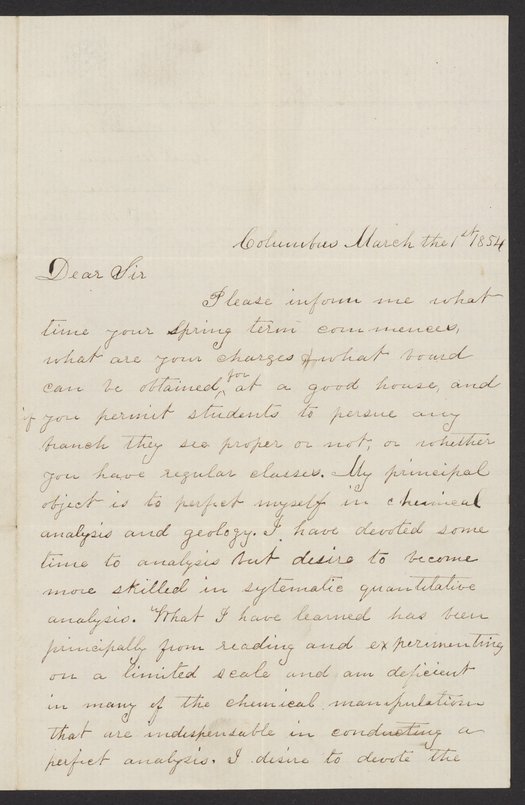 Columbus March the 1st 1854
Dear Sir
Please inform me what
time your spring term commences,
what are your charges & what board
can be obtained, for at a good house, and
if you permit students to persue any
branch they see proper or not, or whether
you have regular classes. My principal
object is to perfect myself in chemical
analysis and geology. I have devoted some
time to analysis but desire to become
more skilled in sytematic quantitative
analysis. What I have learned has been
principally from reading and experimenting
on a limited scale and am deficient
in many of the chemical manipulations
that are indispensable in conducting a
perfect analysis. I desire to devote the